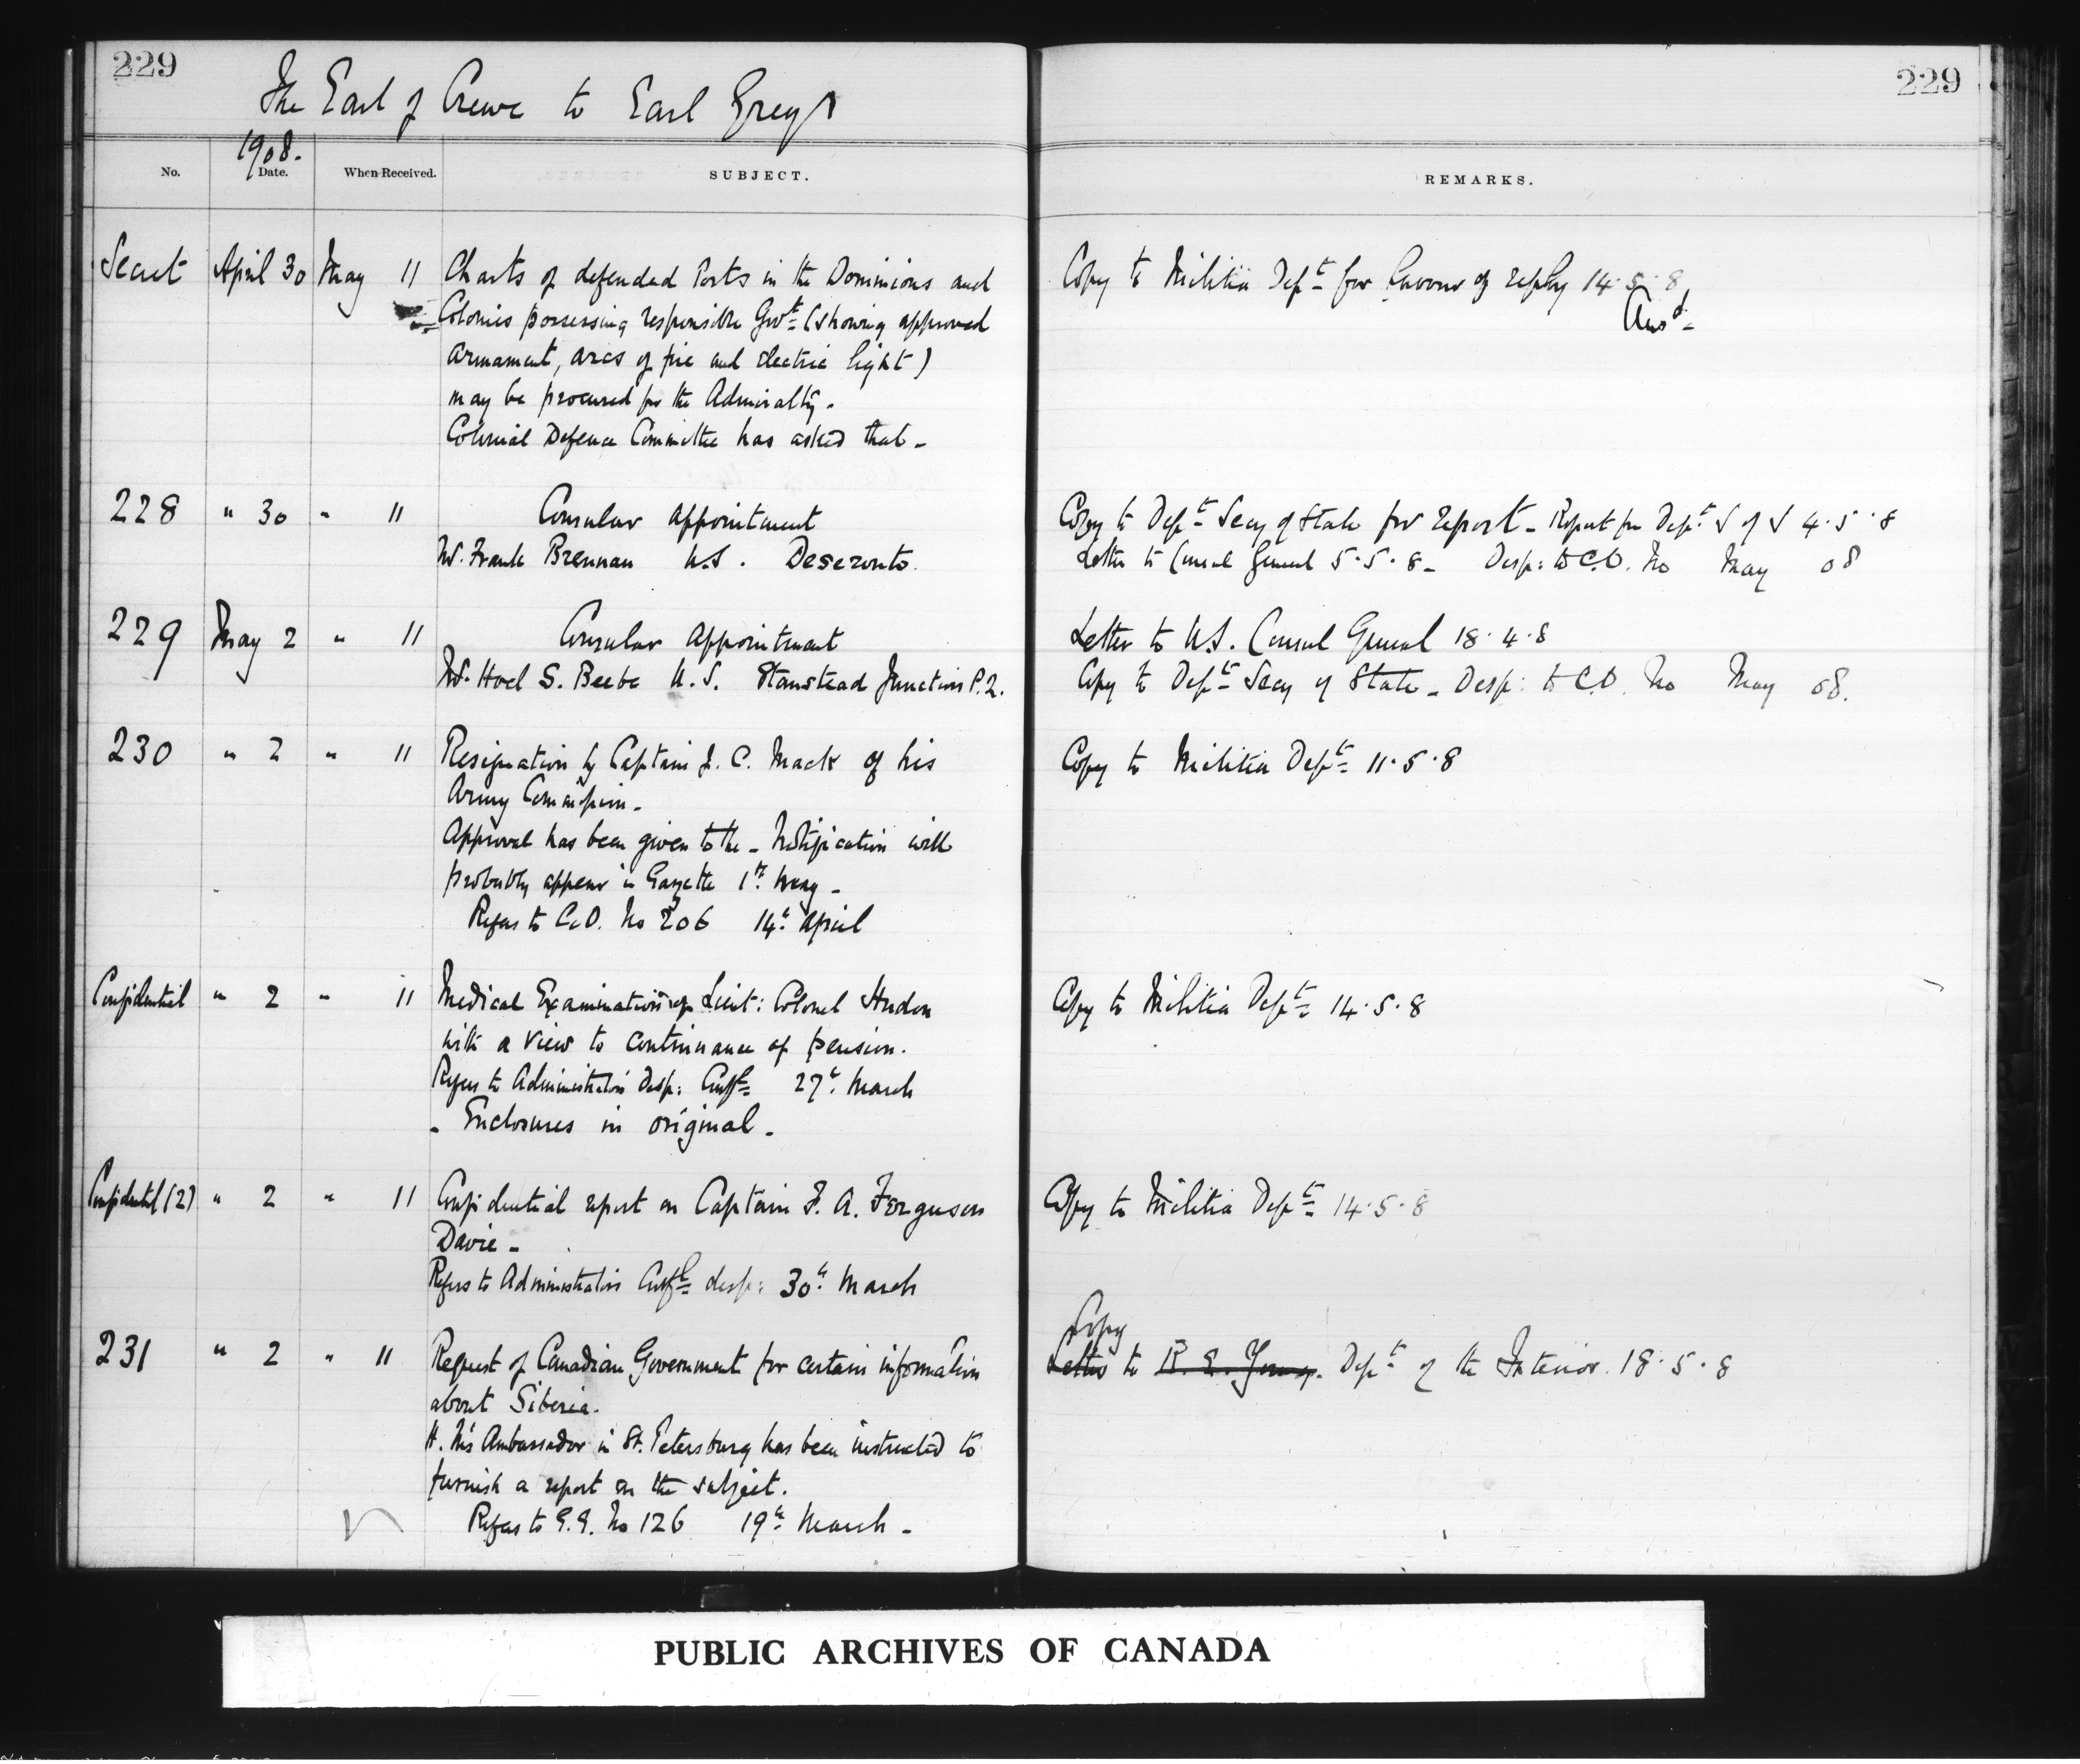 229
229
The Earl of Crewe to Earl Grey
1908.
No. Date. When Received. SUBJECT. REMARKS.
Secret April 30 May 11 Charts of defended Ports in the Dominions and Copy to Militia Dept for favour of reply 14.5.8
Colonies possessing responsible Govt (showing approved Ansd
armament, arcs of fire and electric light)
may be procured for the Admiralty.
Colonial Defence Committee has asked that -
228 " 30 " 11 Consular appointment Copy to Dept Secy of State for report - Report fm Dept S of S 4.5.8
Mr. Frank Brennan U.S. Deseronto. Letter to Consul General 5.5.8 - Desp: to C.O. No May 08
229 May 2 " 11 Consular appointment Letter to U.S. Consul General 18.4.8
Mr. Hoel S. Beebe U.S. Stanstead Junction P.Q. Copy to Dept Secy of State - Desp: to C.O. No May 08.
230 " 2 " 11 Resignation by Captain J. C. Mack of his Copy to Militia Dept 11.5.8
Army Commission -
Approval has been given to the - Notification will
probably appear in Gazette 1st May -
Refers to C.O. No 206 14th April
Confidential " 2 " 11 Medical Examination of Lieut: Colonel Hudon Copy to Militia Dept 14.5.8
with a view to continuance of pension.
Refers to Administrator's Desp: Confl 27th March
- Enclosures in original -
Confidential (2) " 2 " 11 Confidential report on Captain F. A. Ferguson Copy to Militia Dept 14.5.8
Davie -
Refers to Administrators Confl desp: 30th March
Copy
231 " 2 " 11 Request of Canadian Government for certain information Letter to R. E. Young. Dept of the Interior. 18.5.8
about Siberia.
H. M's Ambassador in St. Petersburg has been instructed to
furnish a report on the subject.
Refers to G.G. No 126 19th March -
PUBLIC ARCHIVES OF CANADA